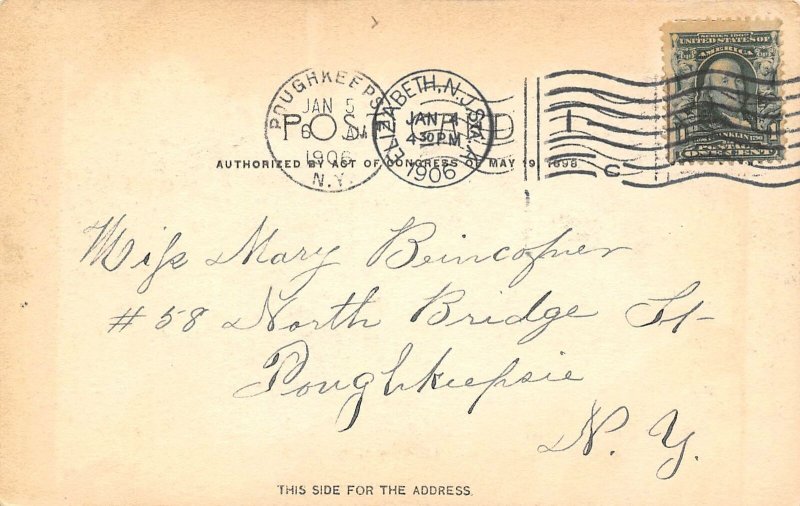 POUGHKEEPS
JAN 5
6 AM
1906
N.Y.
ELIZABETH, N.J. STA. A.
JAN 4
430PM
1906
POS CARD
C
SERIES 1902
UNITED STATES OF
AMERICA
FRANKLIN
POSTAGE
ONE CENT
AUTHORIZED BY ACT OF CONGRESS OF MAY 19, 1898
Miss Mary Beincofner
#58 North Bridge St-
Poughkeepsie
N. Y.
THIS SIDE FOR THE ADDRESS.